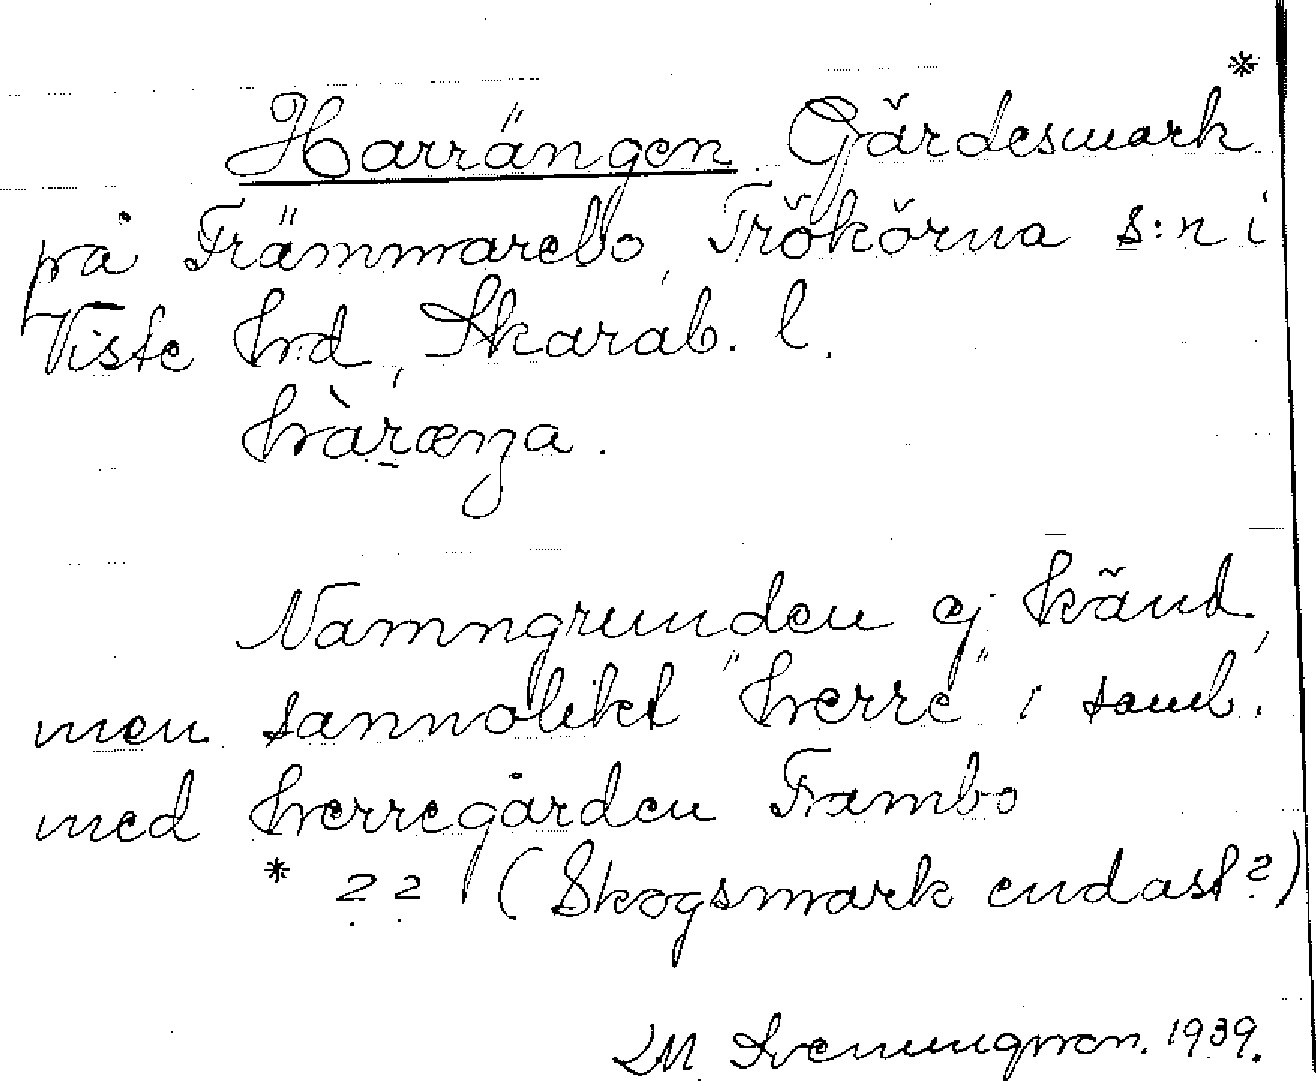 Harrängen Gärdesmark *
på Främmarebo, Trökörna s:n i
Viste hrd, Skarab. l.
hàræŋa.
Namngrunden ej känd,
men sannolikt "herre" i samb.
med herregården Frambo
* ?? (Skogsmark endast?)
LM. Sveningsson. 1939.